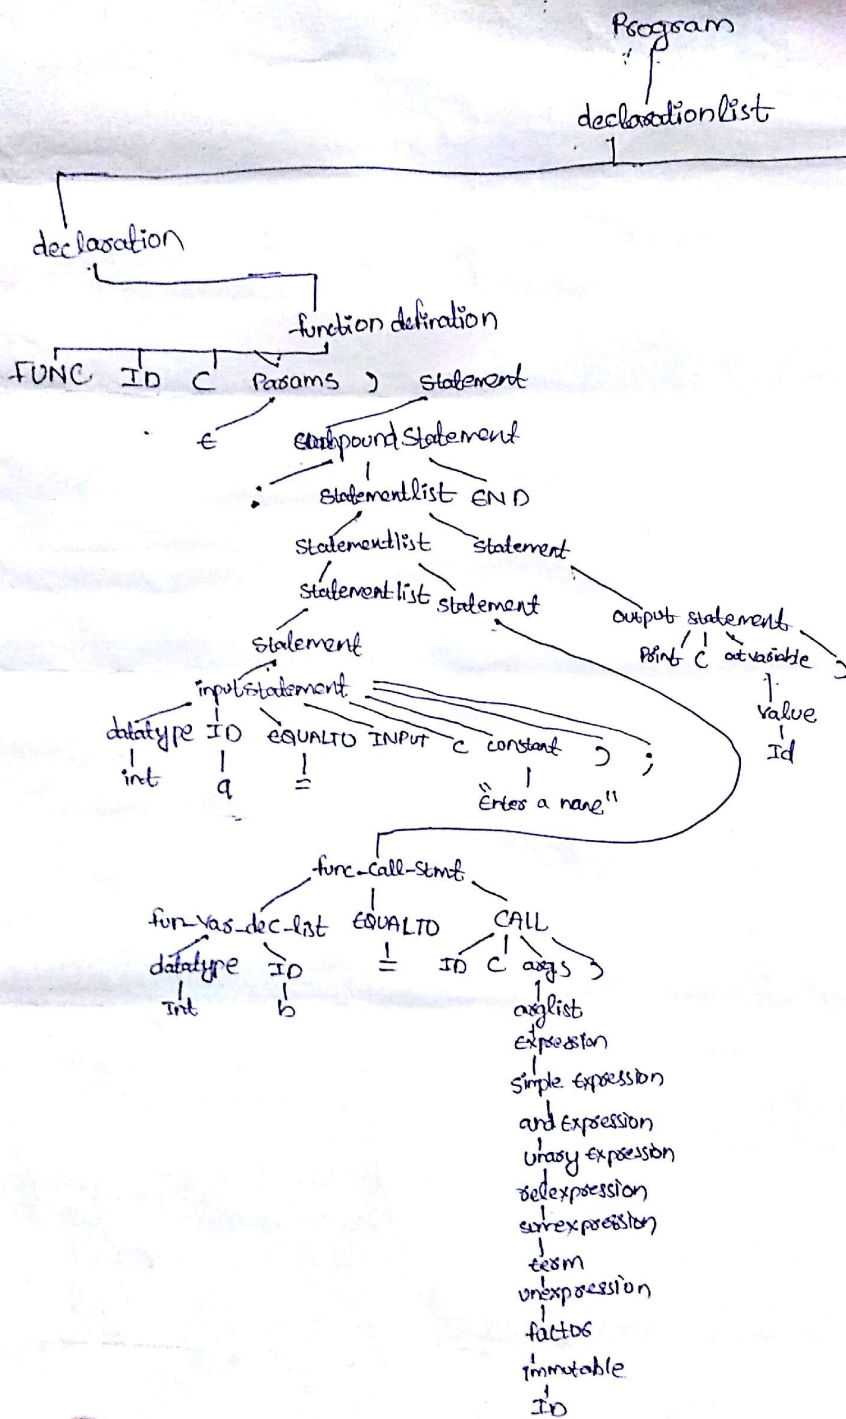 Program
declarationlist
declaration
function defination
FUNC ID ( Params ) statement
ϵ compound statement
: statementlist END
statementlist statement
statementlist statement output statement
statement Print ( outvariable )
inputstatement value
datatype ID EQUALTO INPUT ( constant ) ; Id
int a = "Enter a name"
func-call-stmt
fun-var-dec-list EQUALTO CALL
datatype ID = ID ( args )
Int b arglist
Expression
simple Expression
and Expression
unary Expression
relexpression
sumexpression
term
unexpression
factor
immutable
ID